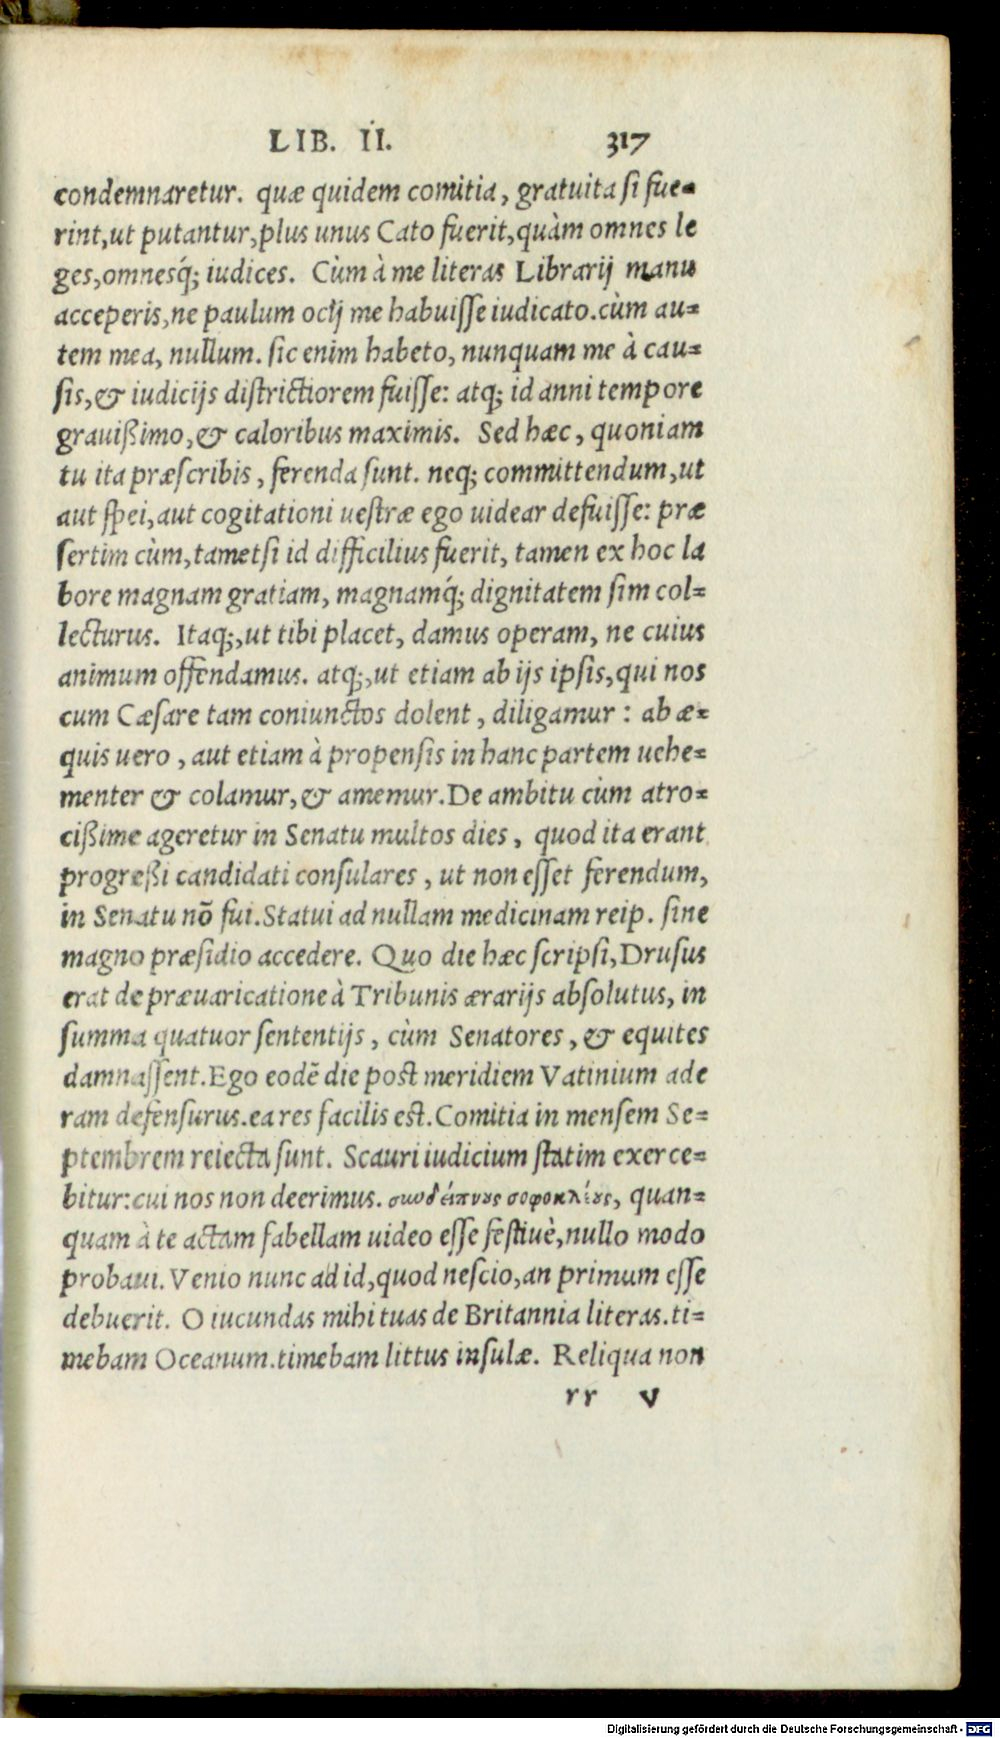 LIB. II. 317
condemnaretur. quæ quidem comitia, gratuita si fue=
rint,ut putantur,plus unus Cato fuerit,quàm omnes le
ges,omnesq́; iudices. Cùm à me literas Librarij manu
acceperis,ne paulum ocij me habuisse iudicato.cùm au=
tem mea, nullum. sic enim habeto, nunquam me à cau=
sis,& iudicijs districtiorem fuisse: atq; id anni tempore
grauißimo,& caloribus maximis. Sed hæc, quoniam
tu ita præscribis, ferenda sunt. neq; committendum,ut
aut spei,aut cogitationi uestræ ego uidear defuisse: præ
sertim cùm,tametsi id difficilius fuerit, tamen ex hoc la
bore magnam gratiam, magnamq́; dignitatem sim col=
lecturus. Itaq;,ut tibi placet, damus operam, ne cuius
animum offendamus. atq;,ut etiam ab ijs ipsis,qui nos
cum Cæsare tam coniunctos dolent, diligamur: ab æ=
quis uero, aut etiam à propensis in hanc partem uehe=
menter & colamur,& amemur.De ambitu cùm atro=
cißime ageretur in Senatu multos dies, quod ita erant
progreßi candidati consulares, ut non esset ferendum,
in Senatu nō fui.Statui ad nullam medicinam reip. sine
magno præsidio accedere. Quo die hæc scripsi,Drusus
erat de præuaricatione à Tribunis ærarijs absolutus, in
summa quatuor sententijs, cùm Senatores, & equites
damnassent.Ego eodē die post meridiem Vatinium ade
ram defensurus.ea res facilis est.Comitia in mensem Se=
ptembrem reiecta sunt. Scauri iudicium statim exerce=
bitur:cui nos non deerimus. συνδείπνους σοφοκλέους, quan=
quam à te actam fabellam uideo esse festiuè,nullo modo
probaui. Venio nunc ad id,quod nescio,an primum esse
debuerit. O iucundas mihi tuas de Britannia literas.ti=
mebam Oceanum.timebam littus insulæ. Reliqua non
rr v
Digitalisierung gefördert durch die Deutsche Forschungsgemeinschaft - DFG